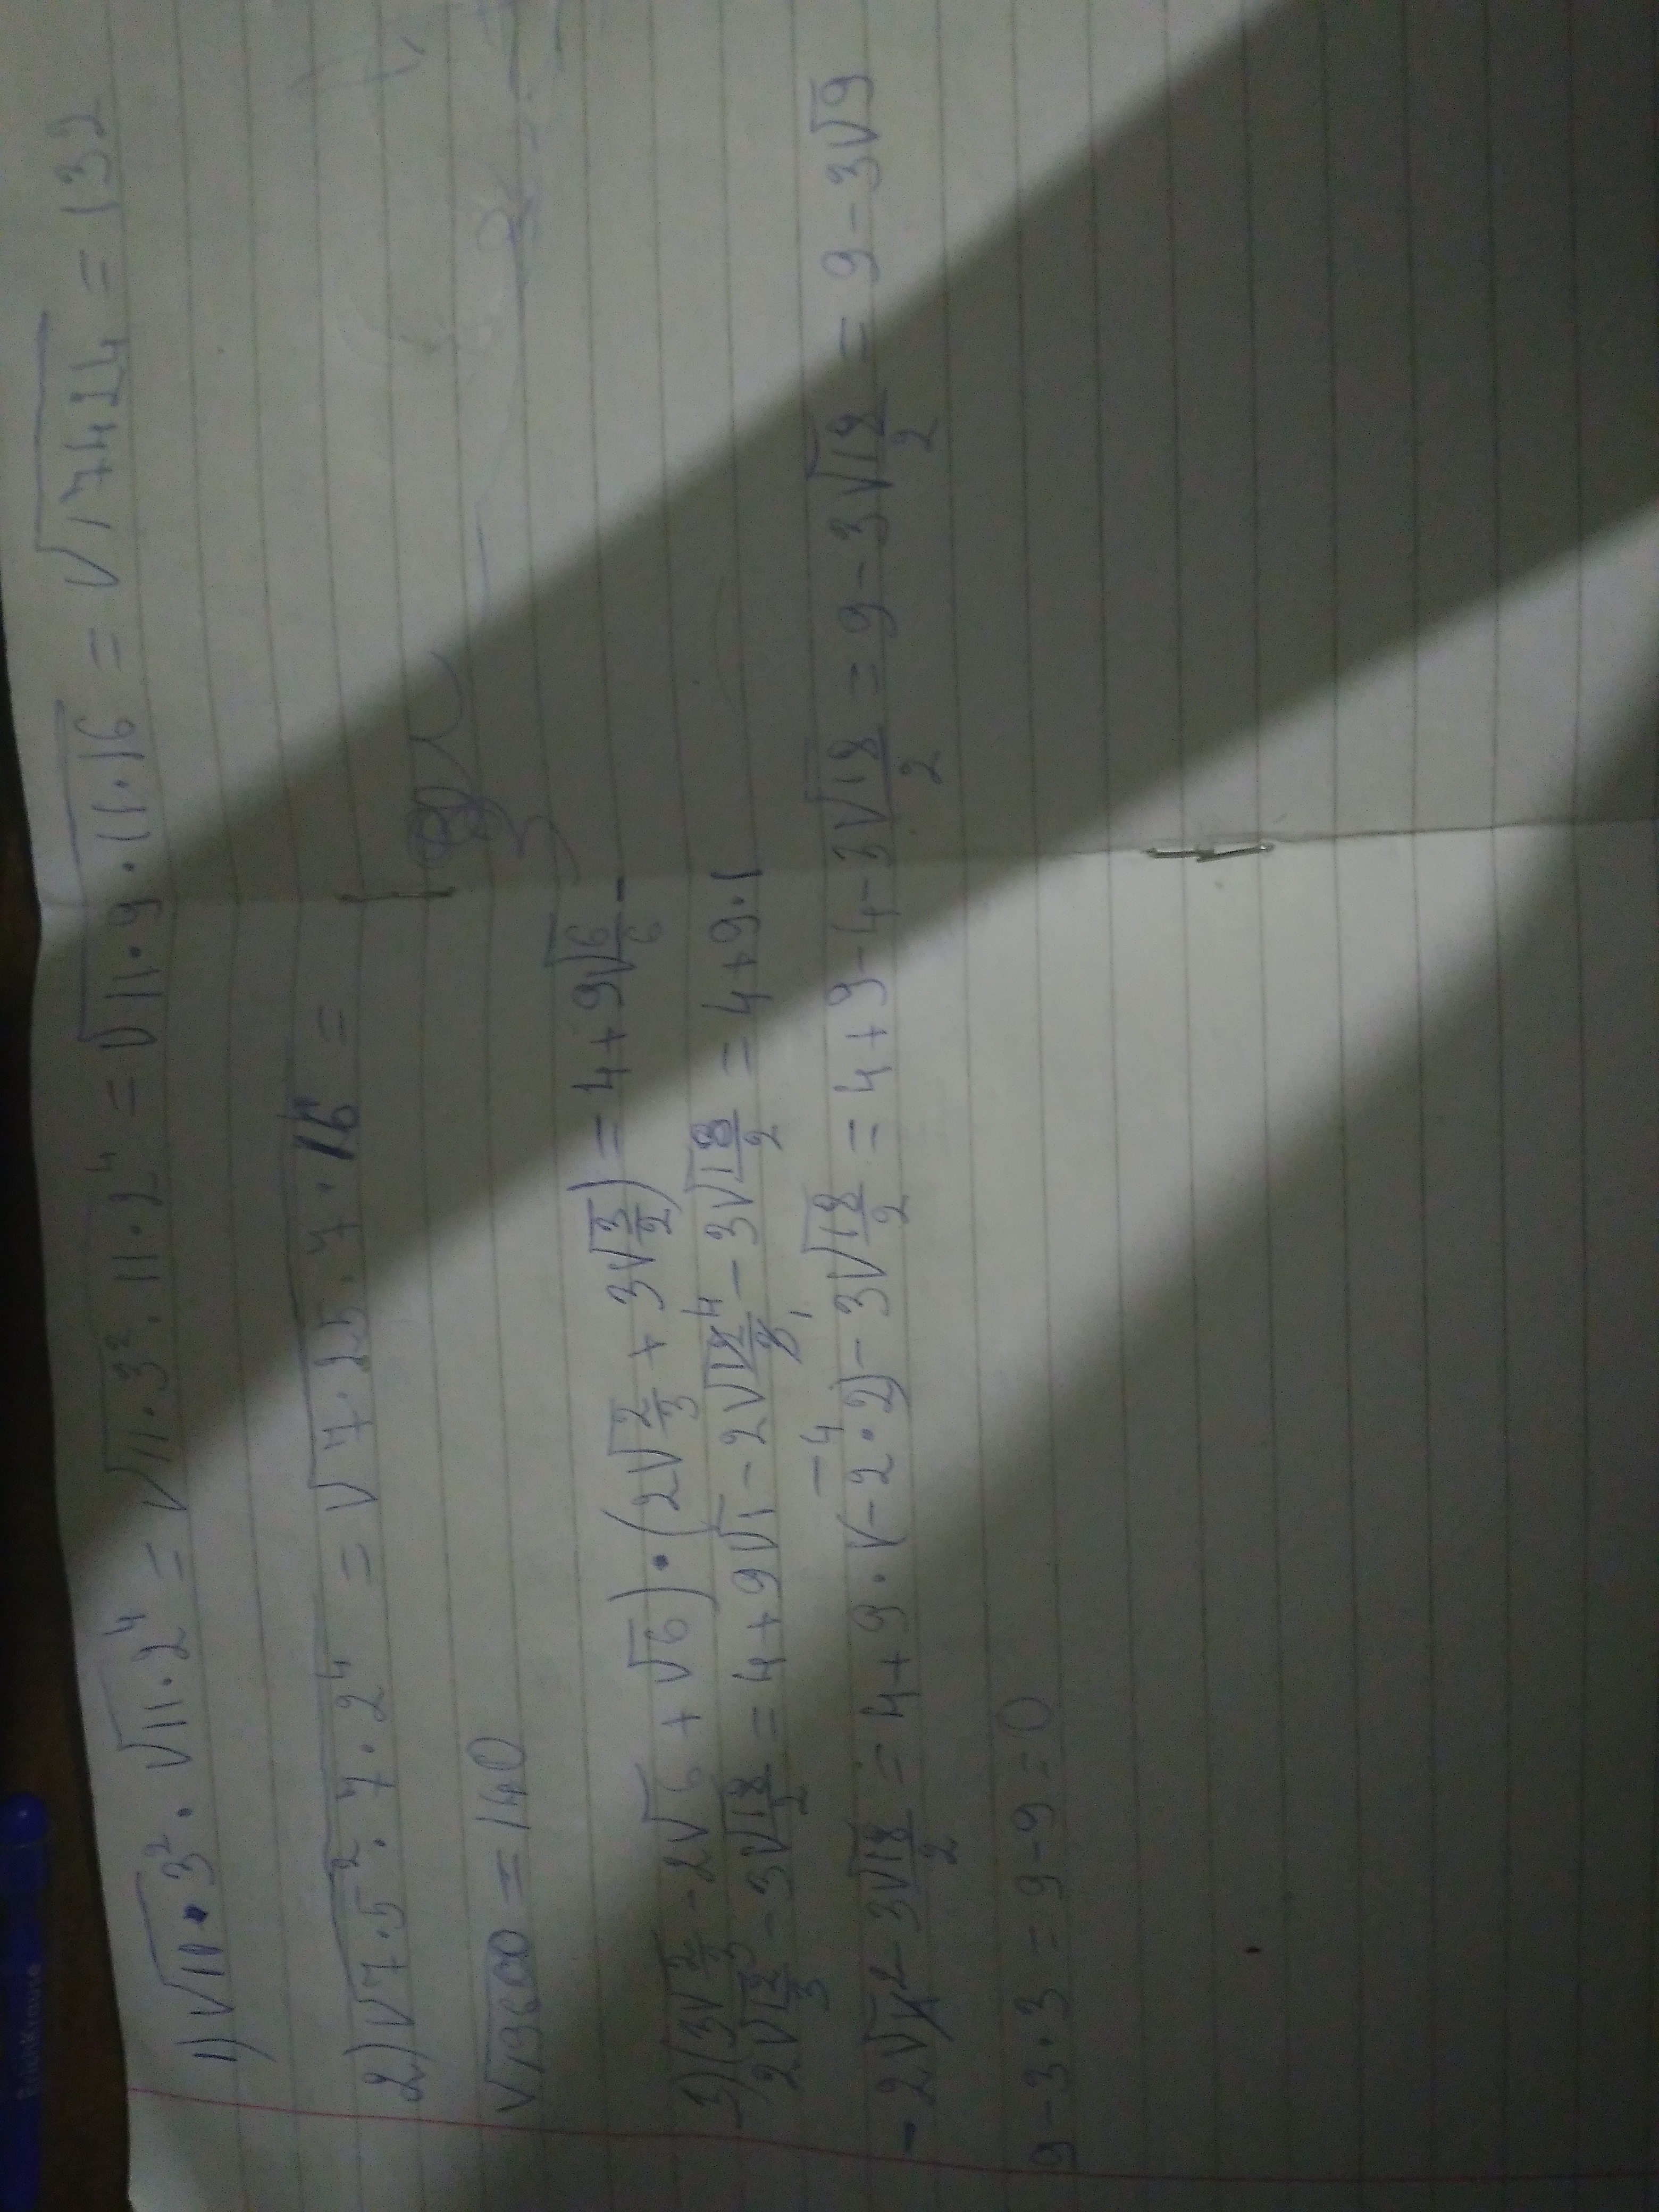 1) √11·3² · √11·2⁴ = √11·3²·11·2⁴ = √11·9·11·16 = √17424 = 132
2) √7·5²·7·2⁴ = √7·25·7·16 =
√19600 = 140
3) (3√2/3 - 2√6 + √6) · (2√2/3 + 3√3/2) = 4+9√6/6 -
2√12/3 - 3√18/2 = 4+9√1 - 2√12⁴/3₁ - 3√18/2 = 4+9·1
- 2√42 - 3√18/2 = 4+9·√(-2·2) - 3√18/2 = 4+9-4-3√18/2 = 9-3√18/2 = 9-3√9
-4
9-3·3 = 9-9=0
ErichKrause